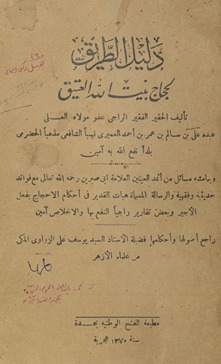 دليل الطريق
لحجاج بيت الله العتيق
تأليف الحقير الفقير الراجي عفو مولاه العلي
عبده علي بن سالم بن عمر بن أحمد العميري نسباً الشافعي مذهباً الحضرمي
بلداً نفع الله به آمين
وبهامشه مسائل من العلامة رحمه الله تعالى مع فوائد
حديثية وفقهية والرسالة المسماة هبات القدير في أحكام الاحجاج بفعل
الأجير وبعض تقارير راجياً النفع بها والاخلاص آمين
راجع أصولها وأحكامها فضيلة الأستاذ السيد يوسف علي الزواوي المكي
من علماء الأزهر
مطبعة الفتح الوطنية بجدة
سنة ١٣٧٠ هجرية